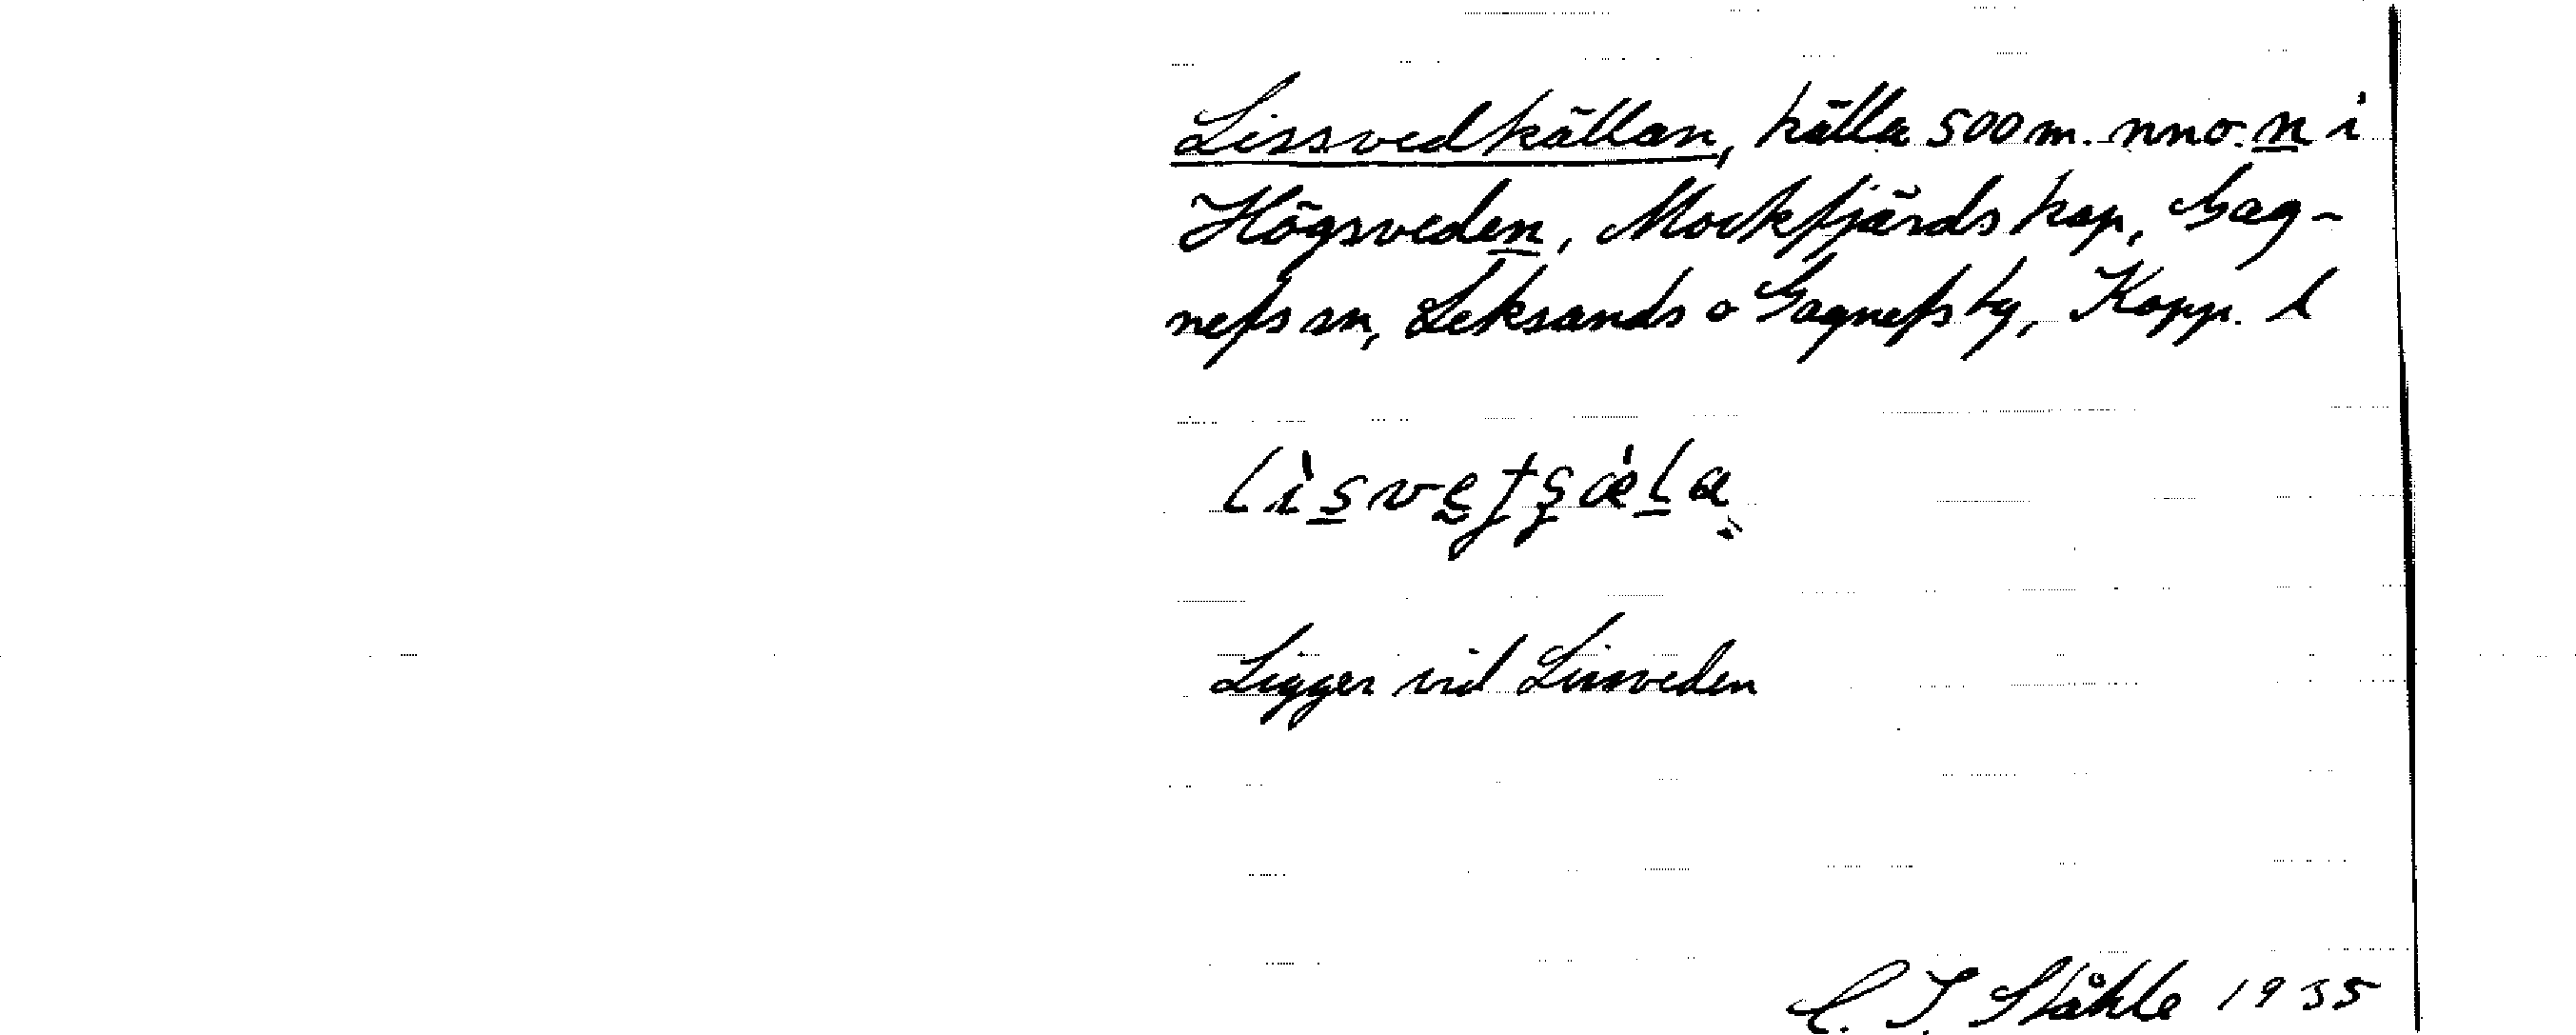 Lissvedkällan, källa 500 m. nno. n i
Högsveden, Mockfjärds kap, Gag-
nefs sn, Leksands o Gagnefs tg, Kopp. l
Ligger vid Lissveden
C. I. Ståhle 1935